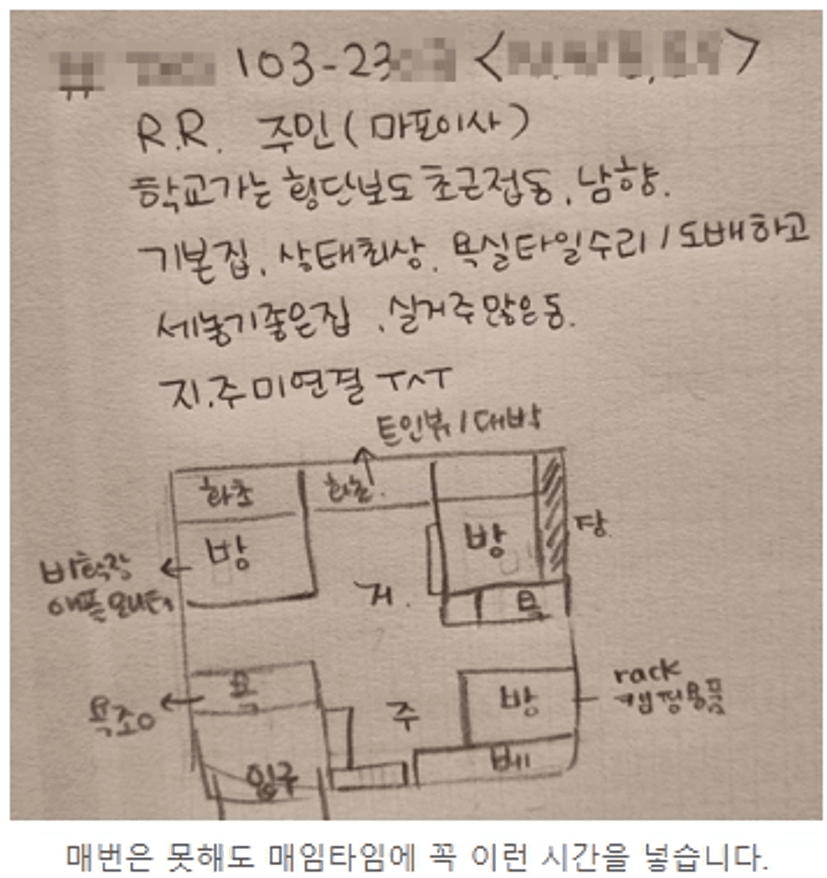 # 103-23 < >
R.R. 주민 ( 마포이사 )
등학교가는 횡단보도 초근접동, 남향.
기본집, 상태최상, 욕실타일수리 / 도배하고
세놓기좋은집, 실거주많은동.
지.주미연결 ㅜㅅㅜ
트인뷰 / 대박
화초
화초.
방
방
장
거.
욕
붙박장
욕
욕조O
주
방
rack
캠핑용품
입구
베
매번은 못해도 매임타임에 꼭 이런 시간을 넣습니다.